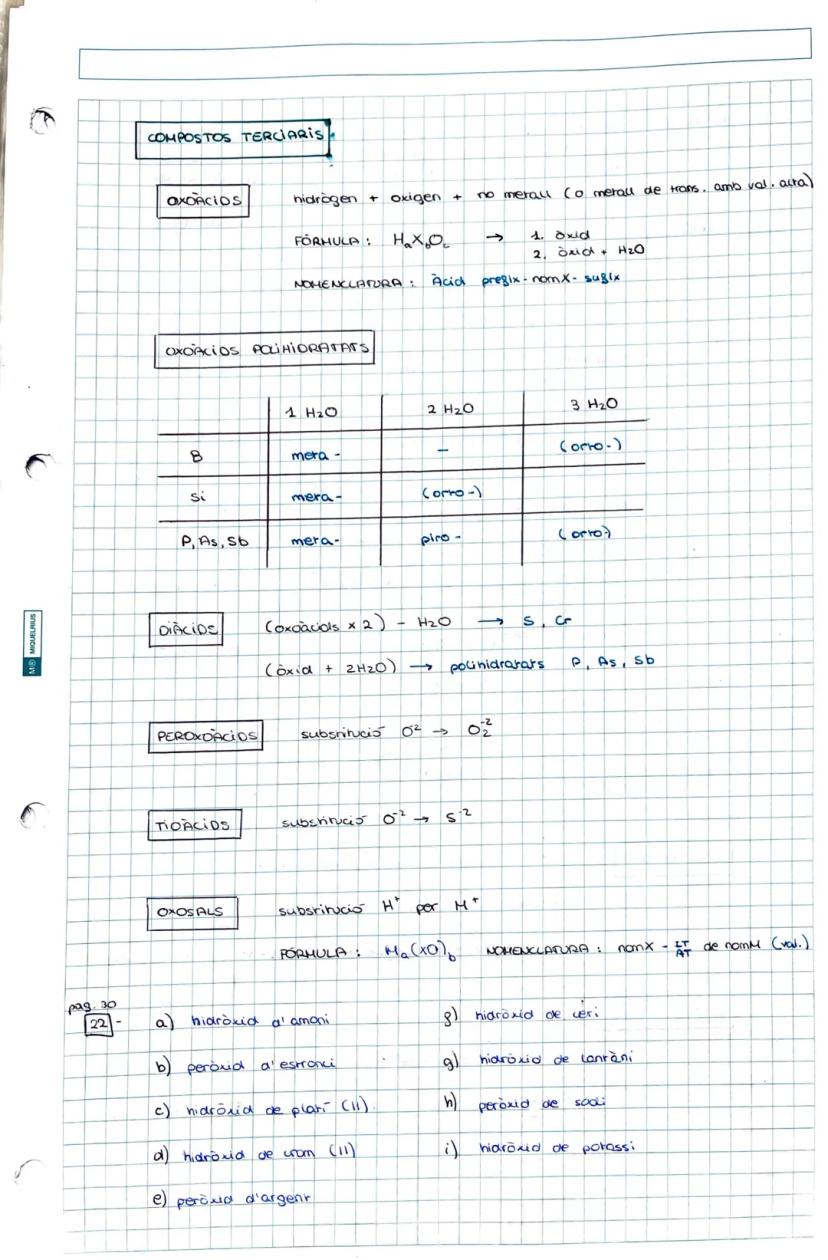 COMPOSTOS TERCIARIS.
OXOÀCIDS hidrògen + oxigen + no metall (o metall de trans. amb val. alta)
FÓRMULA : HaXbOc → 1. òxid
2. òxid + H2O
NOMENCLATURA : Àcid prefix - nomX - sufix
OXOÀCIDS POLIHIDRATATS
1 H2O 2 H2O 3 H2O
B meta - – (orto-)
Si meta- (orto-)
P, As, Sb meta- piro- (orto-)
DIÀCIDS (oxoàcids x 2) - H2O → S, Cr
(òxid + 2H2O) → polihidratats P, As, Sb
PEROXOÀCIDS substitució O² → O2⁻²
TIOÀCIDS substitució O⁻² → S⁻²
OXOSALS substitució H⁺ per M⁺
FÓRMULA : Ma(XO)b NOMENCLATURA : nomX - IT/AT de nomM (val.)
pag. 30
22 -
a) hidròxid d'amoni
b) peròxid d'estronci
c) hidròxid de platí (II)
d) hidròxid de crom (II)
e) peròxid d'argent
f) hidròxid de ceri
g) hidròxid de lantàni
h) peròxid de sodi
i) hidròxid de potassi
M® MIQUELRIUS